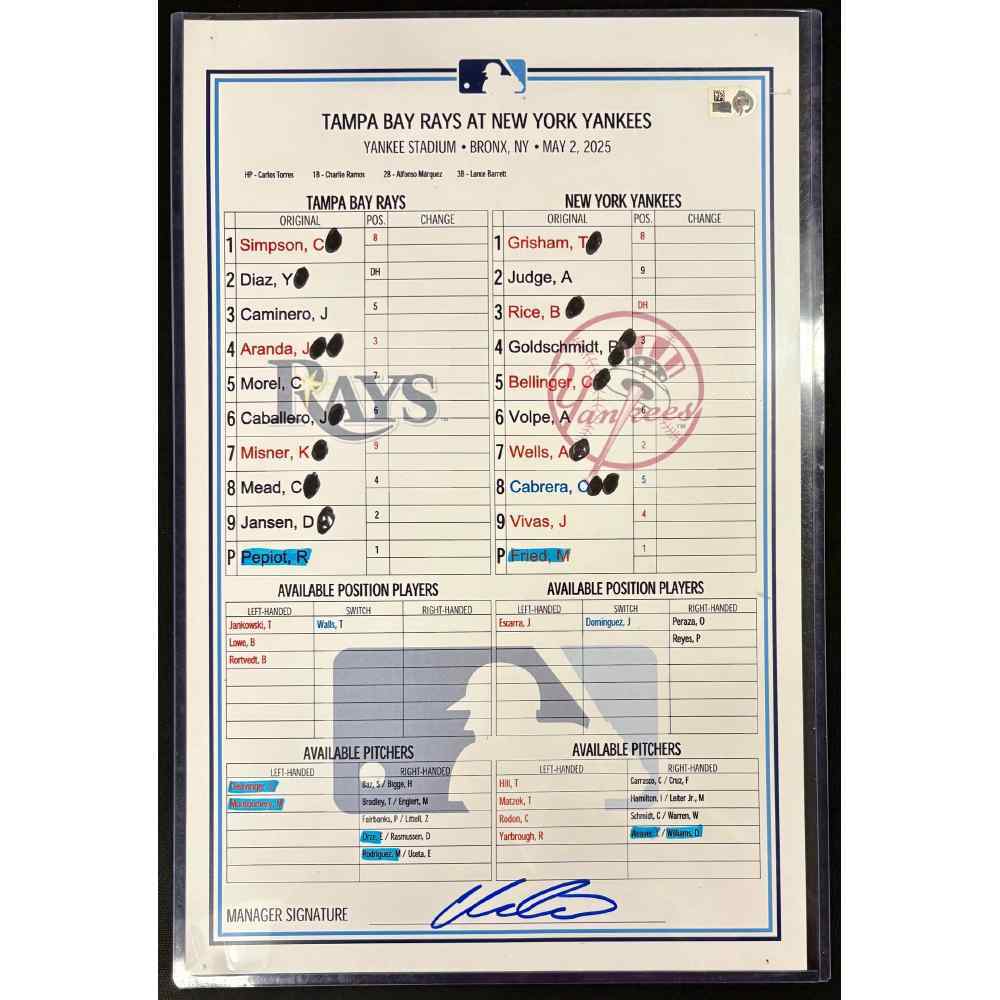 TAMPA BAY RAYS AT NEW YORK YANKEES
YANKEE STADIUM • BRONX, NY • MAY 2, 2025
HP - Carlos Torres 1B - Charlie Ramos 2B - Alfonso Márquez 3B - Lance Barrett
TAMPA BAY RAYS
ORIGINAL POS. CHANGE
1 Simpson, C 8
2 Diaz, Y DH
3 Caminero, J 5
4 Aranda, J 3
5 Morel, C 7
6 Caballero, J 6
7 Misner, K 9
8 Mead, C 4
9 Jansen, D 2
P Pepiot, R 1
RAYS
NEW YORK YANKEES
ORIGINAL POS. CHANGE
1 Grisham, T 8
2 Judge, A 9
3 Rice, B DH
4 Goldschmidt, P 3
5 Bellinger, C
6 Volpe, A 6
7 Wells, A 2
8 Cabrera, O 5
9 Vivas, J 4
P Fried, M 1
Yankees
AVAILABLE POSITION PLAYERS
LEFT-HANDED SWITCH RIGHT-HANDED
Jankowski, T Walls, T
Lowe, B
Rortvedt, B
AVAILABLE POSITION PLAYERS
LEFT-HANDED SWITCH RIGHT-HANDED
Escarra, J Dominguez, J Peraza, O
Reyes, P
AVAILABLE PITCHERS
LEFT-HANDED RIGHT-HANDED
Baz, S / Bigge, H
Montgomery, M Bradley, T / Englert, M
Fairbanks, P / Littell, Z
Orze, E / Rasmussen, D
Rodriguez, M / Uceta, E
AVAILABLE PITCHERS
LEFT-HANDED RIGHT-HANDED
Hill, T Carrasco, C / Cruz, F
Matzek, T Hamilton, I / Leiter Jr., M
Rodon, C Schmidt, C / Warren, W
Yarbrough, R Weaver, L / Williams, D
MANAGER SIGNATURE